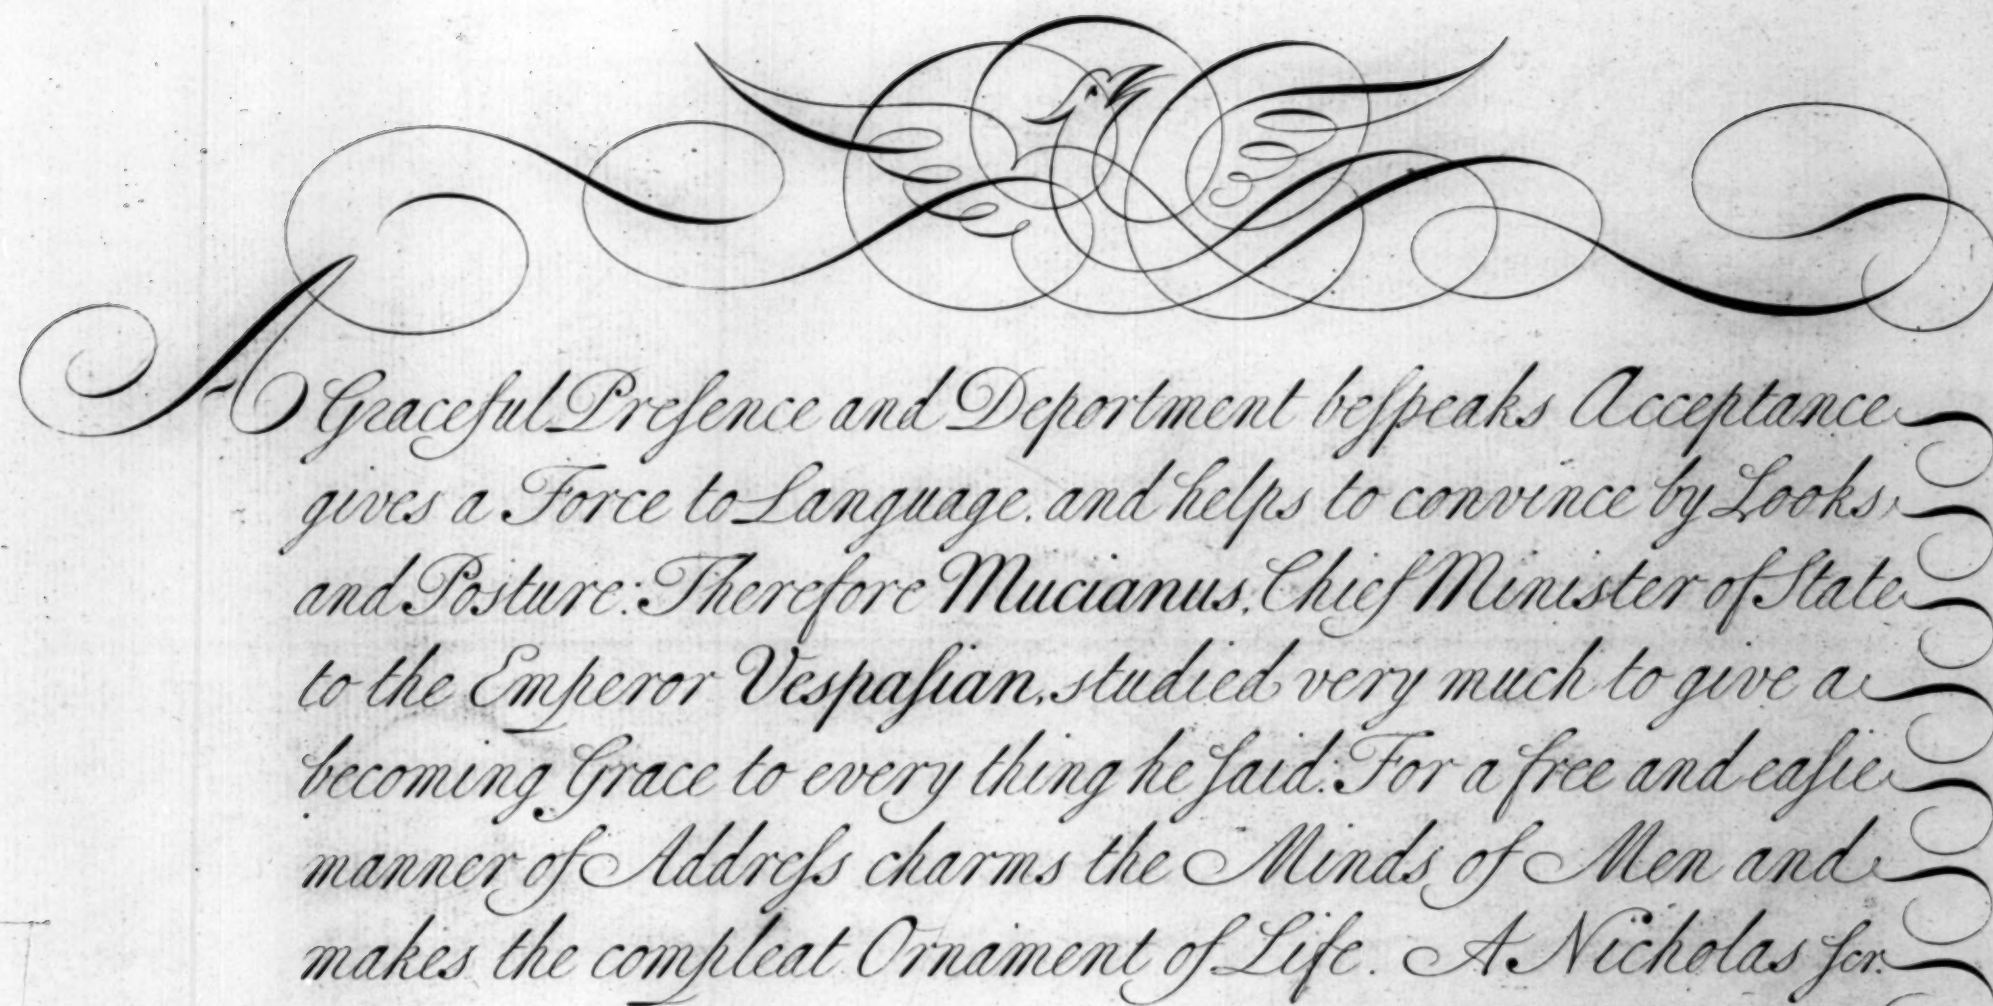 A Graceful Preſence and Deportment beſpeaks Acceptance
gives a Force to Language, and helps to convince by Looks
and Posture: Therefore Mucianus, Chief Minister of State
to the Emperor Vespaſian, studied very much to give a
becoming Grace to every thing he ſaid: For a free and eaſie
manner of Addreſs charms the Minds of Men and
makes the compleat Ornament of Life. A Nicholas ſcr.